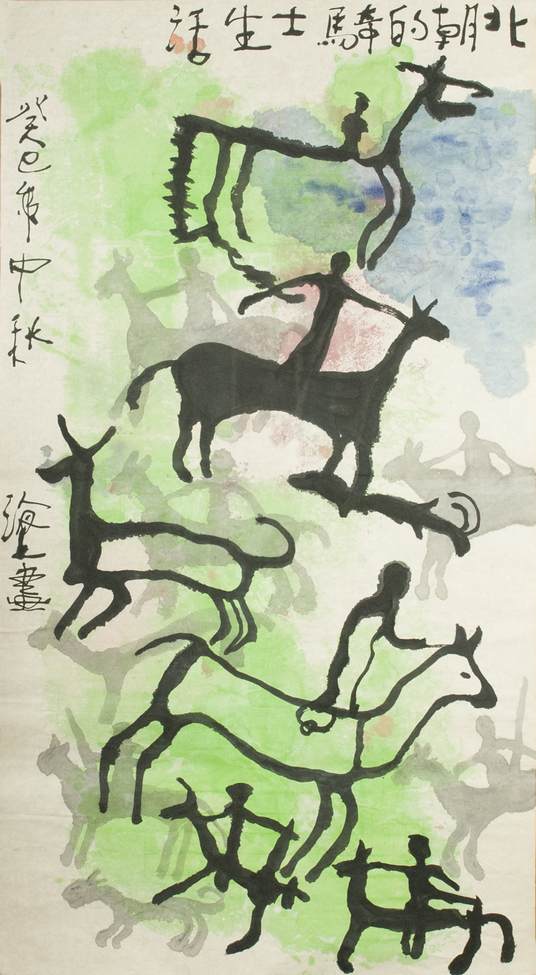 北朝的騎士生活
癸巳年中秋
畫